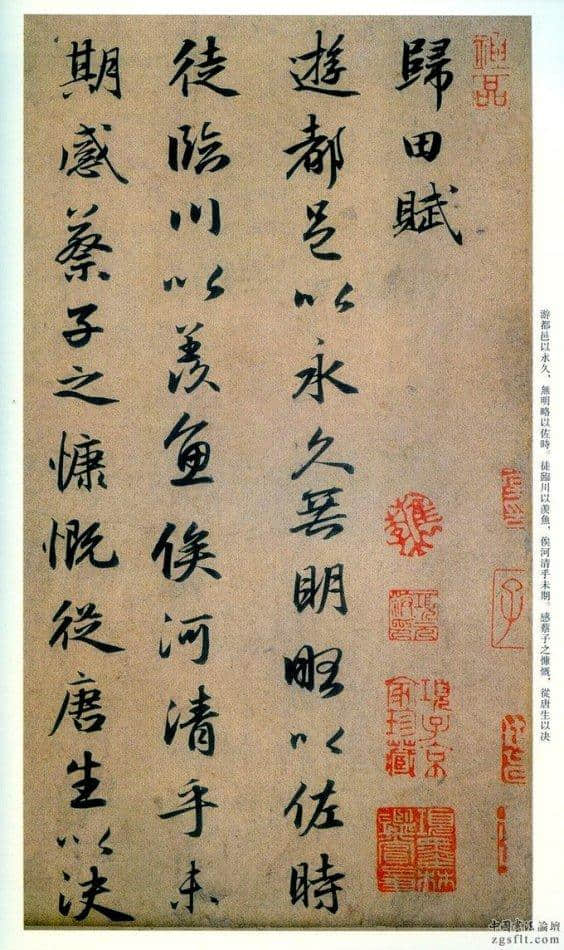 歸田賦
遊都邑以永久無明略以佐時
徒臨川以羨魚俟河清乎未
期感蔡子之慷慨從唐生以決
神品
項子京
家珍藏
項墨林
鑑賞章
子
游都邑以永久，無明略以佐時。徒臨川以羨魚，俟河清乎未期。感蔡子之慷慨，從唐生以决
中国書法論壇
zgsflt.com